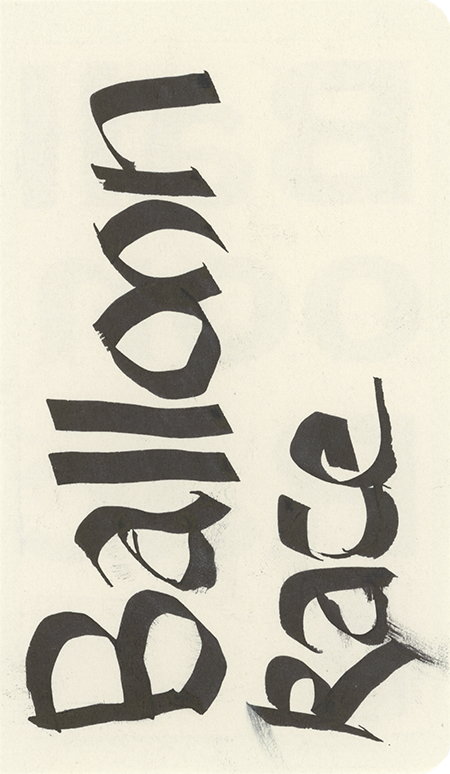 Balloon
Race